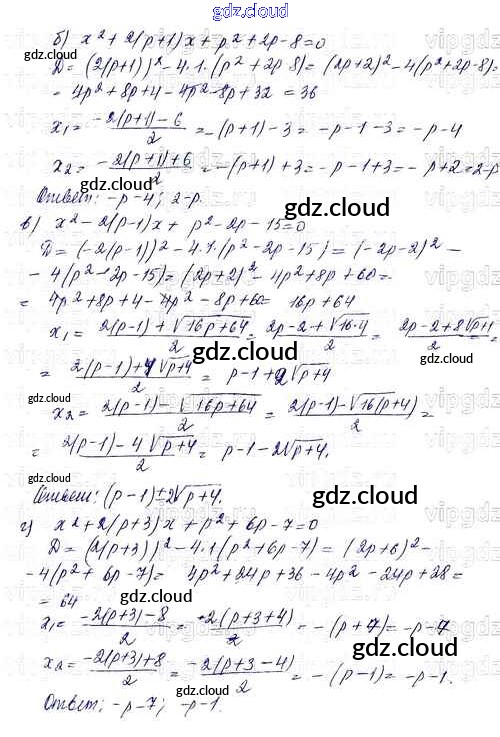 gdz.cloud
б) x² + 2(p+1)x + p² + 2p - 8 = 0
gdz.cloud
D = (2(p+1))² - 4·1·(p² + 2p - 8) = (2p+2)² - 4(p² + 2p - 8) =
= 4p² + 8p + 4 - 4p² - 8p + 32 = 36
x₁ = (-2(p+1) - 6)/2 = -(p+1) - 3 = -p - 1 - 3 = -p - 4
x₂ = (-2(p+1) + 6)/2 = -(p+1) + 3 = -p - 1 + 3 = -p + 2 = 2 - p
gdz.cloud
Ответ: -p-4; 2-p.
gdz.cloud
в) x² - 2(p-1)x + p² - 2p - 15 = 0
D = (-2(p-1))² - 4·1·(p² - 2p - 15) = (-2p-2)² -
- 4(p² - 2p - 15) = (2p+2)² - 4p² + 8p + 60 =
= 4p² + 8p + 4 - 4p² - 8p + 60 = 16p + 64
x₁ = (2(p-1) + √16p+64)/2 = (2p - 2 + √16·4)/2 = (2p - 2 + 8√p+1)/2 =
gdz.cloud
= (2(p-1) + 4√p+4)/2 = p - 1 + 2√p+4
gdz.cloud
x₂ = (2(p-1) - √16p+64)/2 = (2(p-1) - √16(p+4))/2 =
= (2(p-1) - 4√p+4)/2 = p - 1 - 2√p+4.
gdz.cloud
Ответ: (p-1) ± 2√p+4.
gdz.cloud
г) x² + 2(p+3)x + p² + 6p - 7 = 0
D = (2(p+3))² - 4·1(p² + 6p - 7) = (2p+6)² -
- 4(p² + 6p - 7) = 4p² + 24p + 36 - 4p² - 24p + 28 =
gdz.cloud
= 64
x₁ = (-2(p+3) - 8)/2 = (-2(p+3+4))/2 = -(p+7) = -p - 7
gdz.cloud
x₂ = (-2(p+3) + 8)/2 = (-2(p+3-4))/2 = -(p-1) = -p - 1.
gdz.cloud
Ответ: -p-7; -p-1.